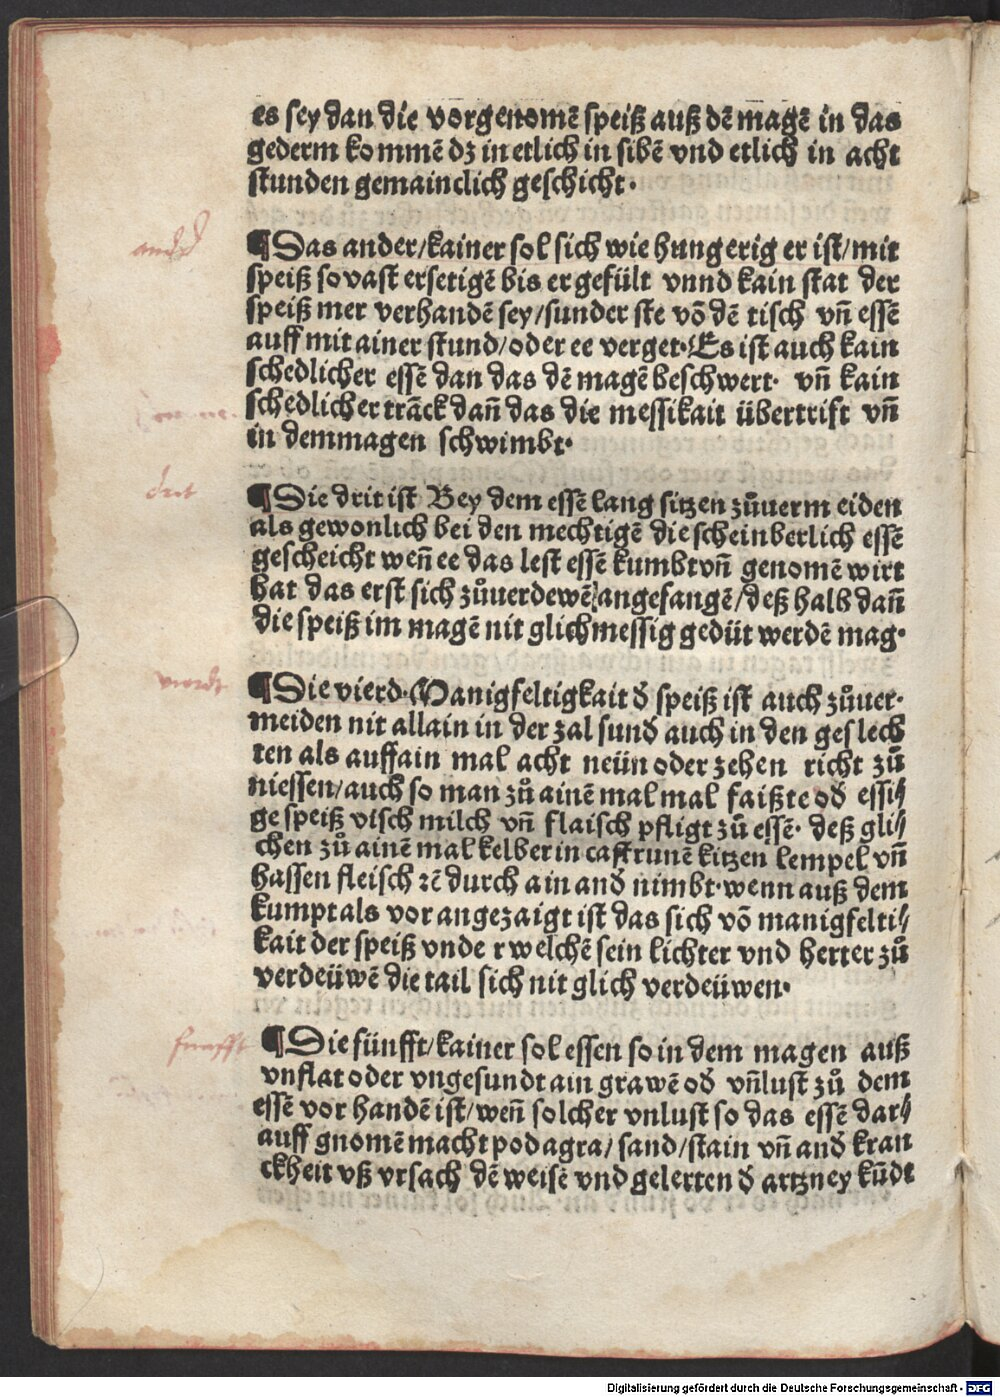 es sey dan die vorgenomē speiß auß dē magē in das
gederm kommē dz in etlich in sibē vnd etlich in acht
stunden gemainclich geschicht.
andd
¶Das ander/kainer sol sich wie hungerig er ist/mit
speiß so vast ersetigē bis er gefült vnnd kain stat der
speiß mer verhandē sey/sunder ste vō dē tisch vn̄ essē
auff mit ainer stund/oder ee verget. Es ist auch kain
schedlicher essē dan das dē magē beschwert. vn̄ kain
schedlicher trāck dan̄ das die messikait übertrift vn̄
in demmagen schwimbt.
drit
¶Die drit ist Bey dem essē lang sitzen zůuerm eiden
als gewonlich bei den mechtigē die scheinberlich essē
gescheicht wen̄ ee das lest essē kumbt vn̄ genomē wirt
hat das erst sich zůuerdewē angefangē/deß halb dan̄
die speiß im magē nit glichmessig gedüt werdē mag.
vierdt
¶Die vierd. Manigfeltigkait ď speiß ist auch zůuer-
meiden nit allain in der zal sunď auch in den geslech
ten als auff ain mal acht neün oder zehen richt zů
niessen/auch so man zů ainē mal mal faißte oď essi⸗
ge speiß visch milch vn̄ flaisch pfligt zů essē. deß gli⸗
chen zů ainē mal kelber in castrunē kitzen lempel vn̄
hassen fleisch ꝛcē durch ain anď nimbt. wenn auß dem
kumpt als vor angezaigt ist das sich vō manigfelti⸗
kait der speiß vnde r welchē sein lichter vnd herter zů
verdeüwē die tail sich nit glich verdeüwen.
funfft
¶Die fünfft/kainer sol essen so in dem magen auß
vnflat oder vngesundt ain grawē oď vn̄lust zů dem
essē vor handē ist/wen̄ solcher vnlust so das essē dar⸗
auff gnomē macht podagra/sand/stain vn̄ anď kran
ckheit vß vrsach dē weisē vnd gelerten ď artzney kūdt
Digitalisierung gefördert durch die Deutsche Forschungsgemeinschaft - DFG